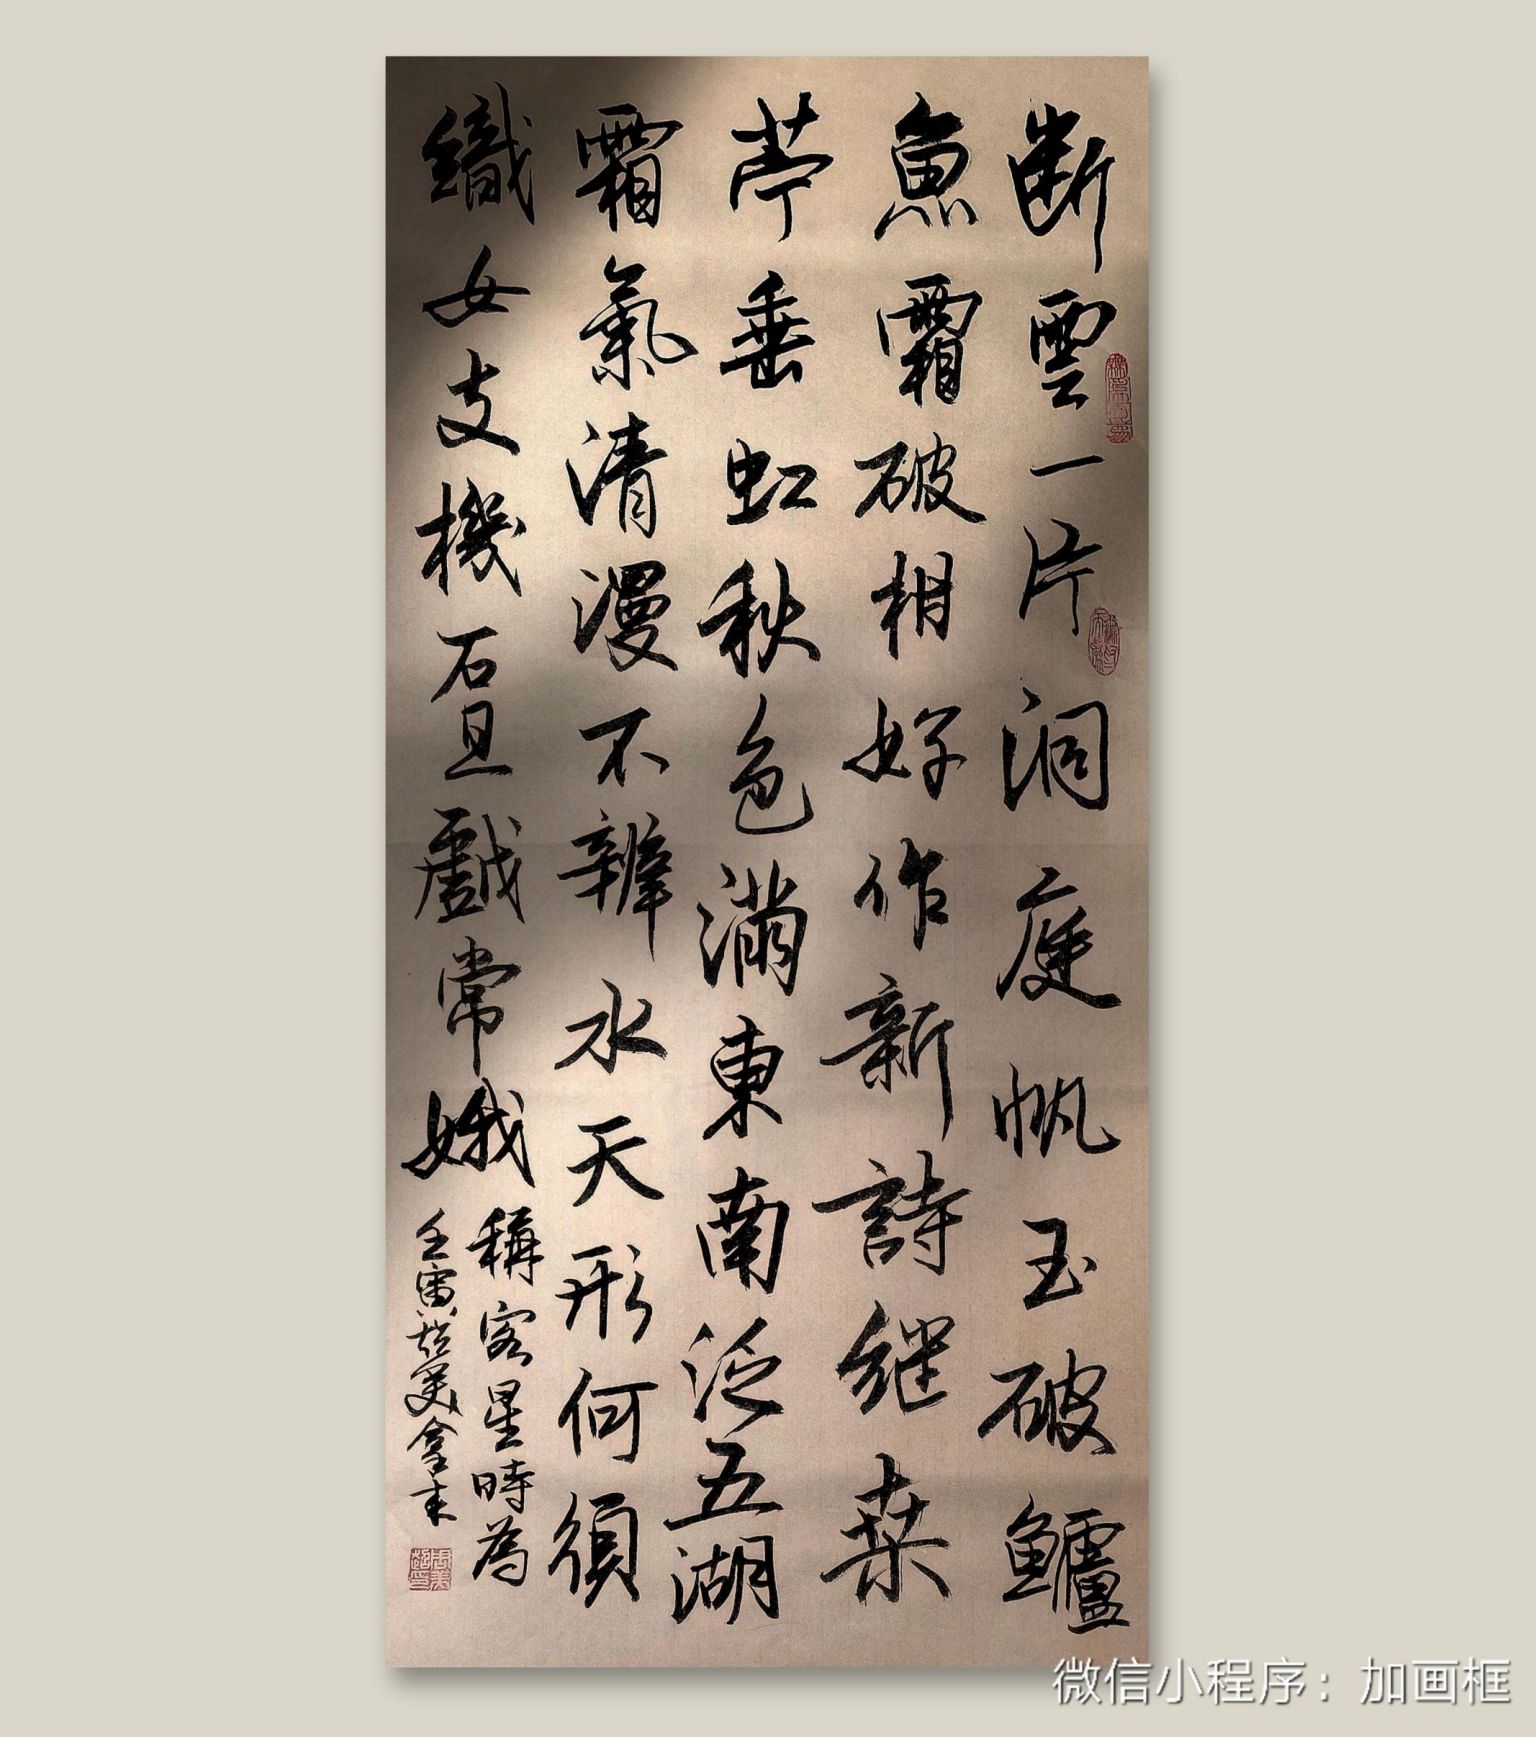 断雲一片洞庭帆玉破鱸
魚霜破相好作新詩继桒
苧垂虹秋色滿東南泛五湖
霜氣清漫不辨水天形何須
織女支機石且戲常娥
稱客星時為
壬寅
微信小程序：加画框